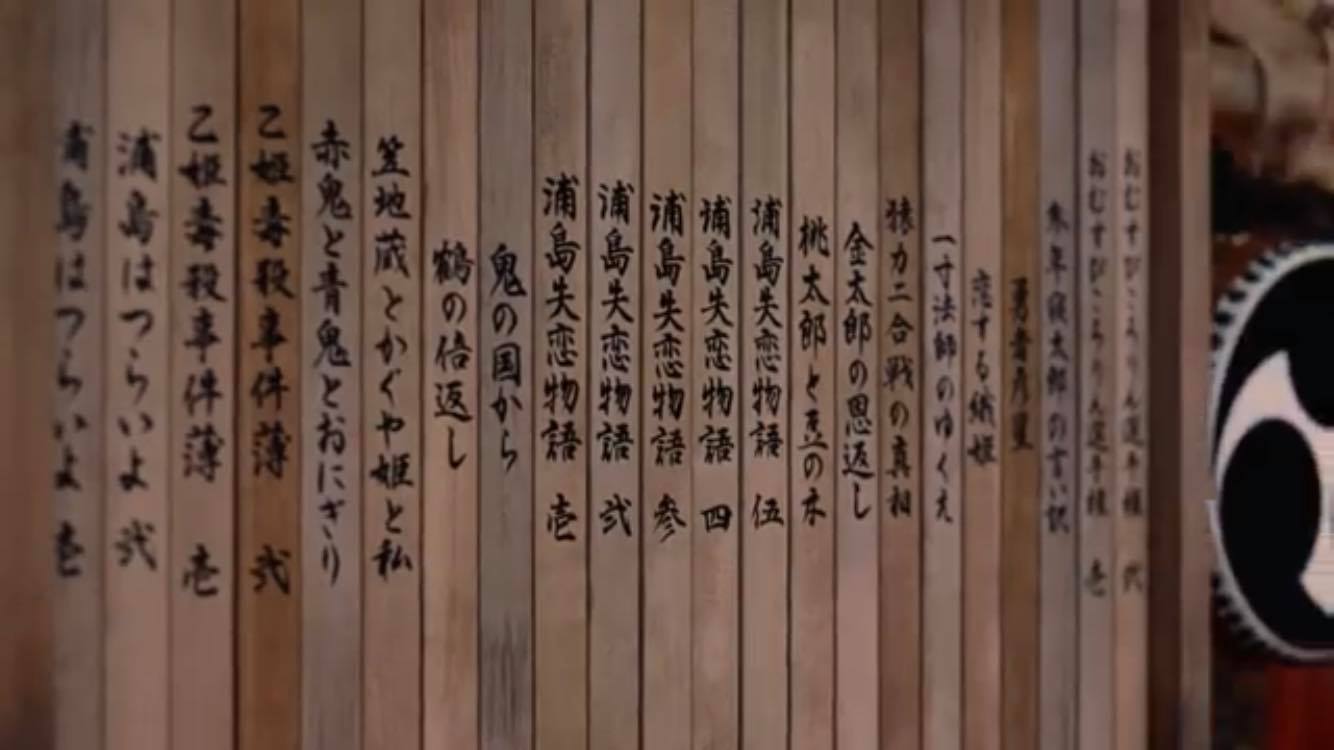 おむすびころりん選手権 弐
おむすびころりん選手権 壱
三年寝太郎の言い訳
勇者彦星
恋する織姫
一寸法師のゆくえ
猿カニ合戦の真相
金太郎の恩返し
桃太郎と豆の木
浦島失恋物語 伍
浦島失恋物語 四
浦島失恋物語 参
浦島失恋物語 弐
浦島失恋物語 壱
鬼の国から
鶴の倍返し
笠地蔵とかぐや姫と私
赤鬼と青鬼とおにぎり
乙姫毒殺事件薄 弐
乙姫毒殺事件薄 壱
浦島はつらいよ 弐
浦島はつらいよ 壱